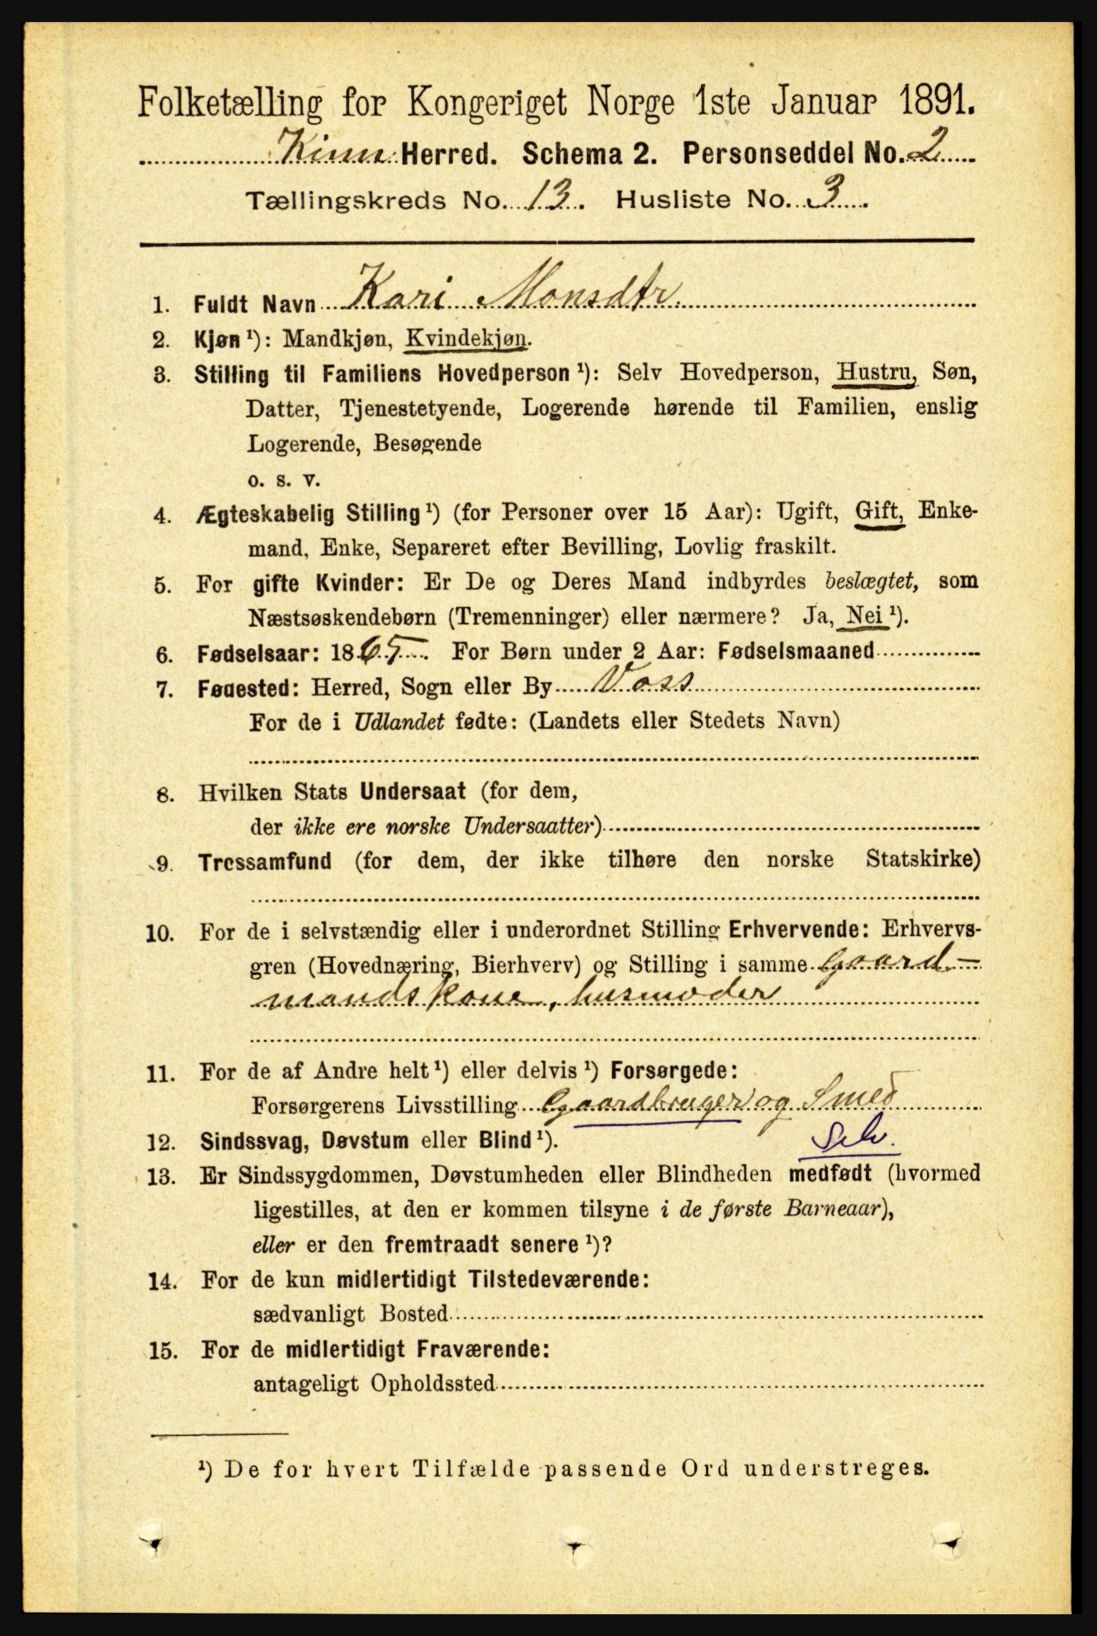 Folketælling for Kongeriget Norge 1ste Januar 1891.
Kinn Herred. Schema 2. Personseddel No. 2
Tællingskreds No. 13. Husliste No. 3.
1. Fuldt Navn Kari Monsdtr.
2. Kjøn ¹): Mandkjøn, Kvindekjøn.
3. Stilling til Familiens Hovedperson ¹): Selv Hovedperson, Hustru, Søn,
Datter, Tjenestetyende, Logerende hørende til Familien, enslig
Logerende, Besøgende
o. s. v.
4. Ægteskabelig Stilling ¹) (for Personer over 15 Aar): Ugift, Gift, Enke-
mand, Enke, Separeret efter Bevilling, Lovlig fraskilt.
5. For gifte Kvinder: Er De og Deres Mand indbyrdes beslægtet, som
Næstsøskendebørn (Tremenninger) eller nærmere? Ja, Nei ¹).
6. Fødselsaar: 1865. For Børn under 2 Aar: Fødselsmaaned
7. Fødested: Herred, Sogn eller By Voss
For de i Udlandet fødte: (Landets eller Stedets Navn)
8. Hvilken Stats Undersaat (for dem,
der ikke ere norske Undersaatter)
9. Trossamfund (for dem, der ikke tilhøre den norske Statskirke)
10. For de i selvstændig eller i underordnet Stilling Erhvervende: Erhvervs-
gren (Hovednæring, Bierhverv) og Stilling i samme Gaard-
mandskone, husmoder
11. For de af Andre helt ¹) eller delvis ¹) Forsørgede:
Forsørgerens Livsstilling Gaardbruger og Smed
12. Sindssvag, Døvstum eller Blind ¹). Selv.
13. Er Sindssygdommen, Døvstumheden eller Blindheden medfødt (hvormed
ligestilles, at den er kommen tilsyne i de første Barneaar),
eller er den fremtraadt senere ¹)?
14. For de kun midlertidigt Tilstedeværende:
sædvanligt Bosted
15. For de midlertidigt Fraværende:
antageligt Opholdssted
¹) De for hvert Tilfælde passende Ord understreges.